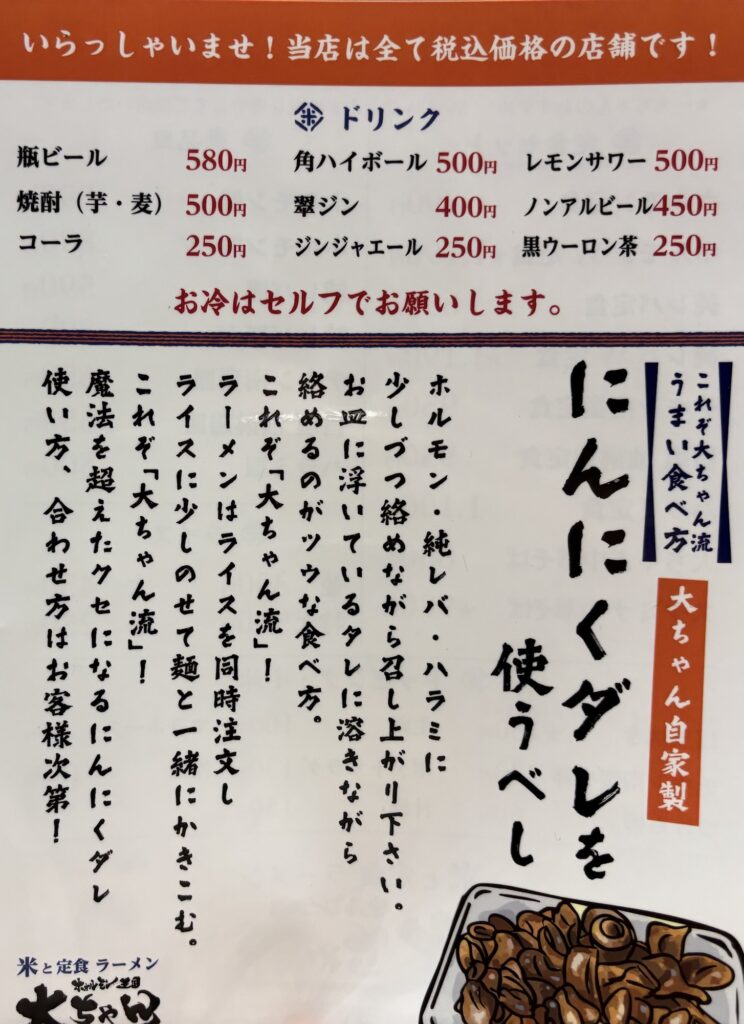 いらっしゃいませ！当店は全て税込価格の店舗です！
米 ドリンク
瓶ビール 580円 角ハイボール 500円 レモンサワー 500円
焼酎（芋・麦） 500円 翠ジン 400円 ノンアルビール 450円
コーラ 250円 ジンジャエール 250円 黒ウーロン茶 250円
お冷はセルフでお願いします。
これぞ大ちゃん流
うまい食べ方
大ちゃん自家製
にんにくダレを
使うべし
ホルモン・純レバ・ハラミに
少しづつ絡めながら召し上がり下さい。
お皿に浮いているタレに溶きながら
絡めるのがツウな食べ方。
これぞ「大ちゃん流」！
ラーメンはライスを同時注文し
ライスに少しのせて麺と一緒にかきこむ。
これぞ「大ちゃん流」！
魔法を超えたクセになるにんにくダレ
使い方、合わせ方はお客様次第！
米と定食 ラーメン
大ちゃん